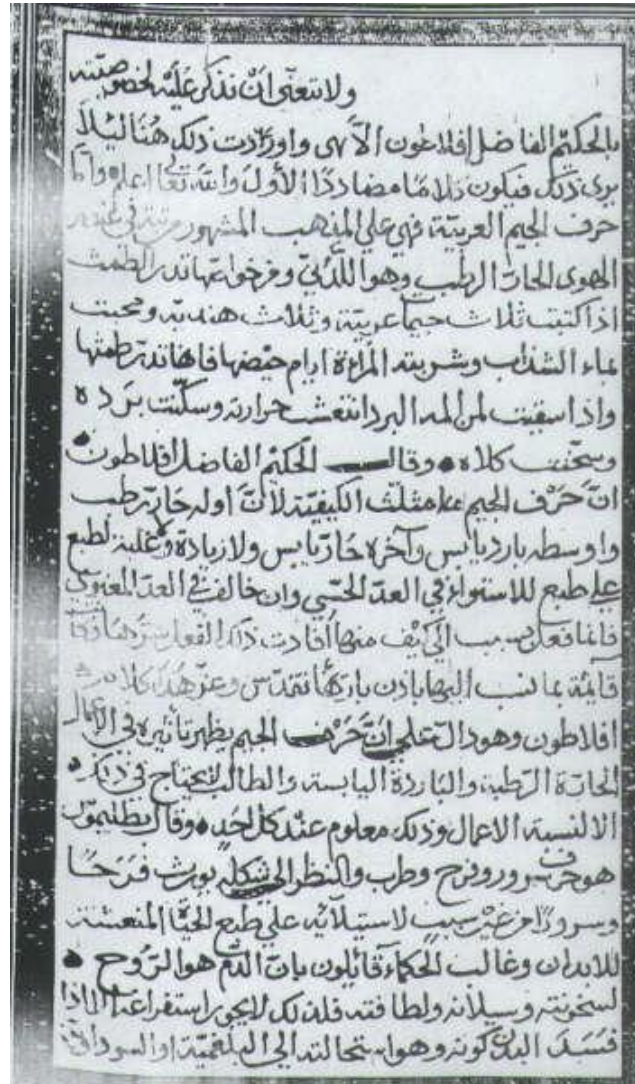 ولا تعنى ان نذكر عليه لخصوصيته
بالحكيم الفاضل افلاطون الالهي واوردت ذلك هنا ليلا
يرى ذلك فيكون كلاما مضاددا الأول والله تعا اعلم واما
حرف الجيم العربية فهي على المذهب المشهور مرتبة في عنصر
الهوى الحارّ الرطب وهو اللدني ومن خواصها تدر الطمث
اذا كتبت ثلاث جيما عربية وثلاث هندية ومحيت
بماء الشذاب وشربته المراة ايام حيضها فانها تدر طمثها
واذا سقيت لمن المه البرد انتعشت حرارته وسكنت برده
وسخنت كلاه وقال الحكيم الفاضل افلاطون
انّ حَرْف الجيم مثلث الكيفيّة لانّ اوله حَارّ رطب
واوسطه بارد يابس وآخره حَارّ يابس ولا زيادة ولا غلبة لطبع
علي طبع للاستواء في العدّ الحسّي وان خالف في العدّ المعنوي
فانما فعل بسبب الي ايّف منها افادت ذلك الفعل
قايمة بما نسب اليها باذن باريها تقدّس وعزّ هذا كلام
افلاطون وهو دالّ علي انّ حَرْف الجيم يظهر تأثيره في الاعمال
الحَارّة الرّطبة والبَاردة اليابسة والطالب لا يحتاج في ذلك
الا لنسبة الاعمال وذلك معلوم عند كل احد وقال بطليموس
هو حرف سرور وفرح وطرب والنظر الي شكله يورث فَرَحًا
وسرورًا من غيْر سبب لاستيلائه علي طبع الحيَاة المنعشة
للابدان وغالب الحُكماء قائلون بانّ الدّم هو الرّوح
لسخونته وسيلانه ولطافته فلذلك لا يجوز استفراغه الماذا
فَسَدَ البدن كونه وهو استحالته الي البلغميّة او السوداويّة